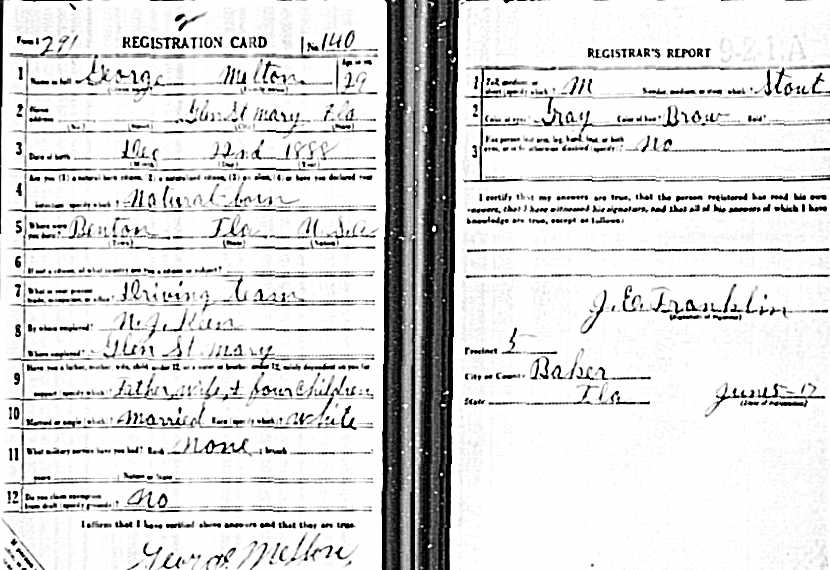 Form 1 291 REGISTRATION CARD No. 140
1 Name in full George Melton Age in yrs. 29
(Given name) (Family name)
2 Home address Glen St mary Fla
(No.) (Street) (City) (State)
3 Date of birth Dec 22nd 1888
(Month) (Day) (Year)
4 Are you (1) a natural born citizen, (2) a naturalized citizen, (3) an alien, (4) or have you declared your
intention (specify which)? Natural born
5 Where were you born? Benton Fla U.S.A
(Town) (State) (Nation)
6 If not a citizen, of what country are you a citizen or subject?
7 What is your present trade, occupation, or office? Driving team
8 By whom employed? N. J.
Where employed? Glen St. mary
9 Have you a father, mother, wife, child under 12, or a sister or brother under 12, solely dependent on you for
support (specify which)? Father, wife, + four children
10 Married or single (which)? Married Race (specify which)? White
11 What military service have you had? Rank None ; branch
years ; Nation or State
12 Do you claim exemption from draft (specify grounds)? No
I affirm that I have verified above answers and that they are true.
George Melton
REGISTRAR'S REPORT
1 Tall, medium, or short (specify which)? M Slender, medium, or stout (which)? Stout
2 Color of eyes? Gray Color of hair? Brow Bald?
3 Has person lost arm, leg, hand, foot, or both eyes, or is he otherwise disabled (specify)? No
I certify that my answers are true, that the person registered has read his own
answers, that I have witnessed his signature, and that all of his answers of which I have
knowledge are true, except as follows:
J. E. Franklin
(Signature of Registrar)
Precinct 5
City or County Baker
State Fla June 5-17
(Date of registration)